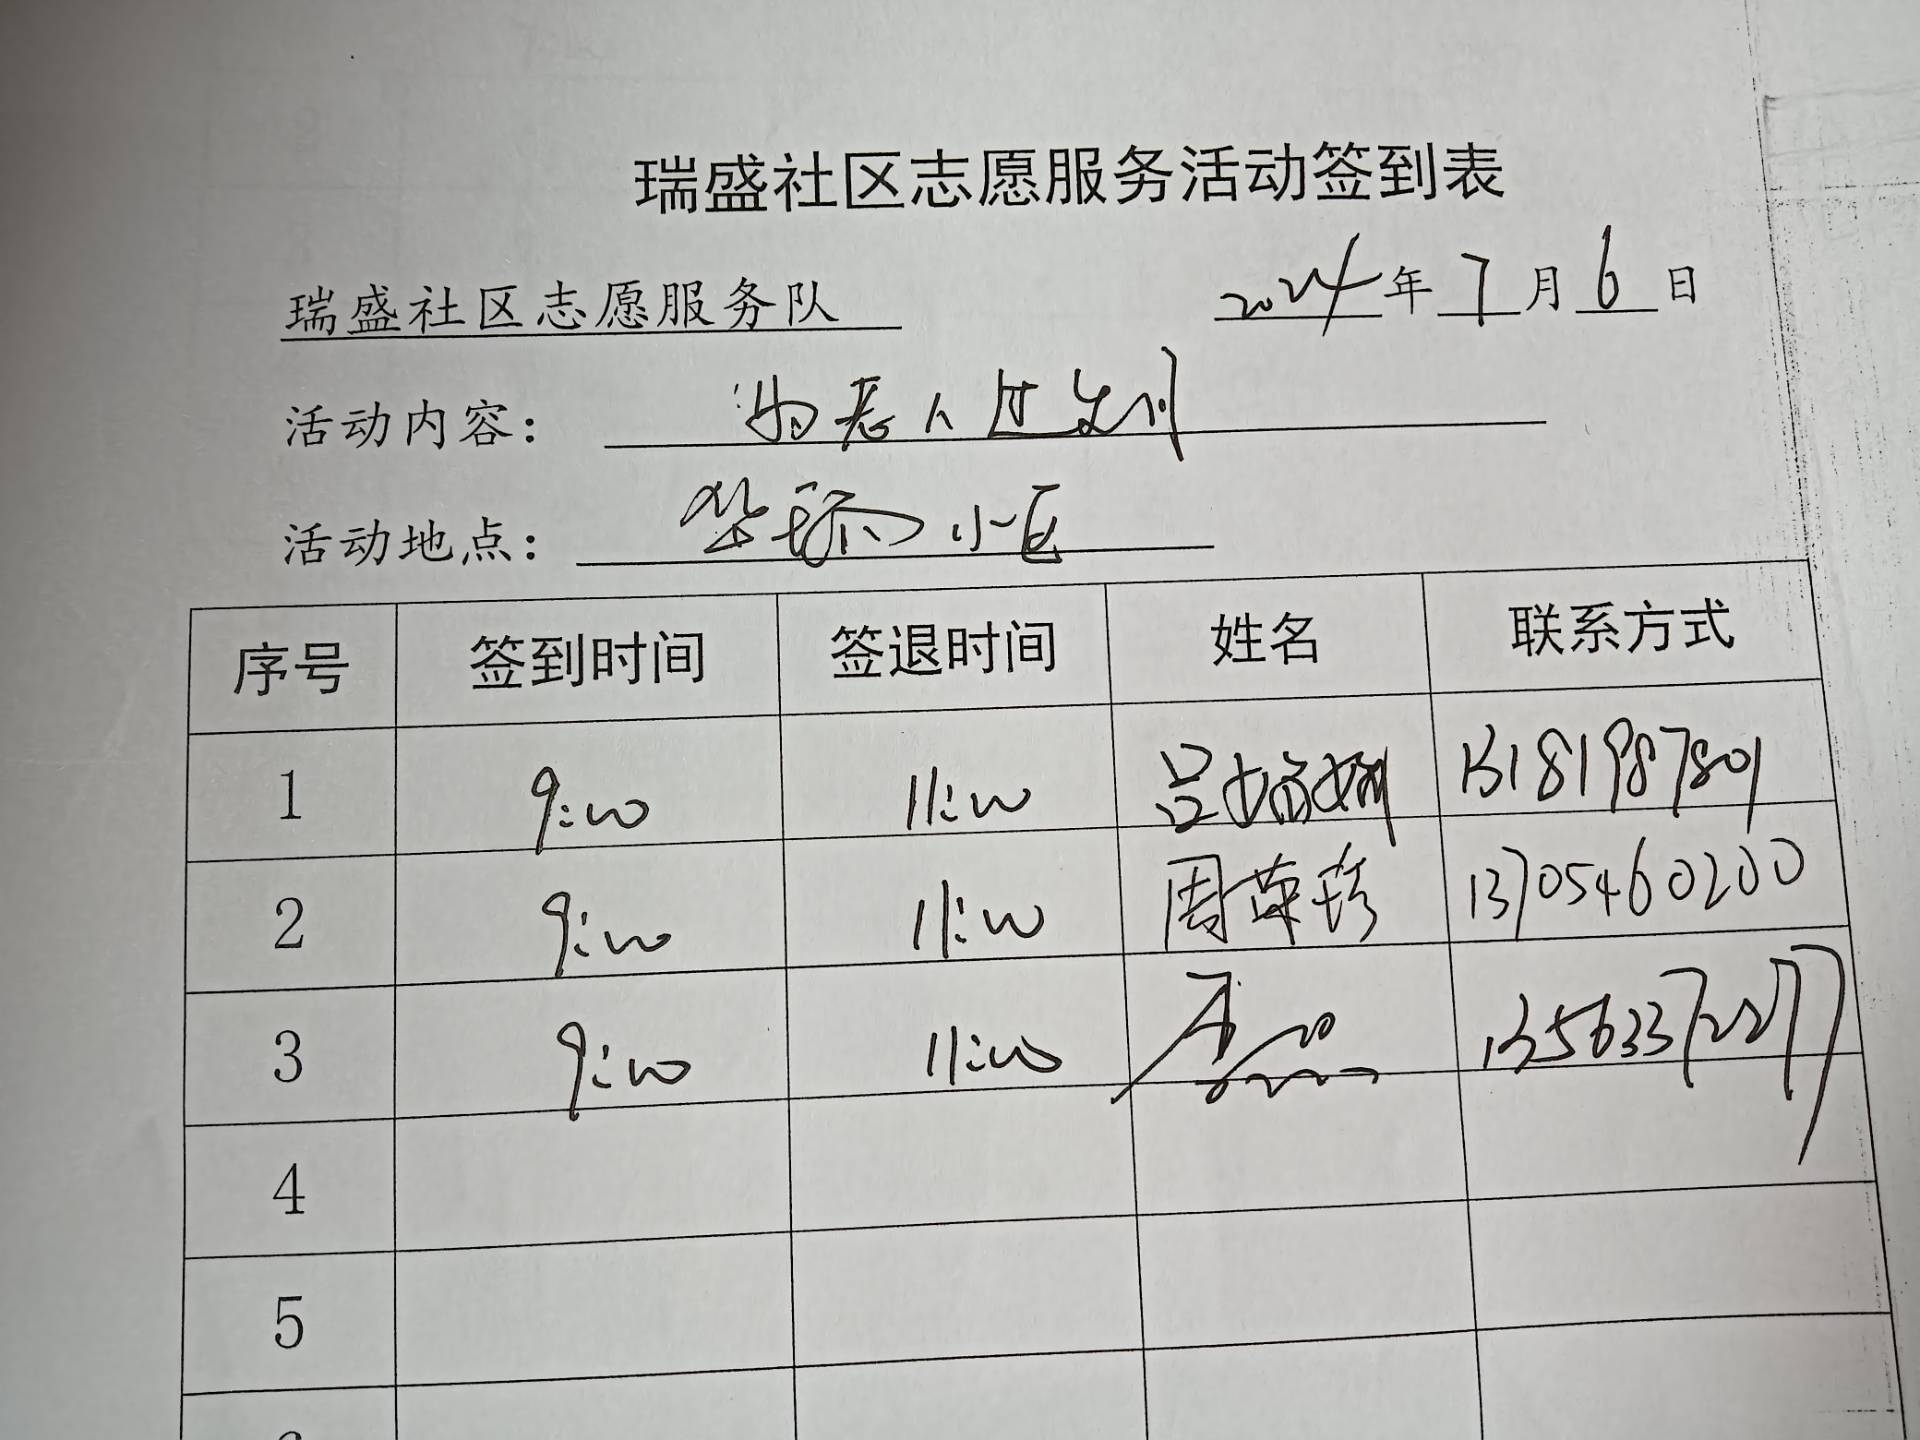 瑞盛社区志愿服务活动签到表
瑞盛社区志愿服务队 2024年7月6日
活动内容: 为老人过生日
活动地点: 小区
序号 签到时间 签退时间 姓名 联系方式
1 9:00 11:00 吕 13181987801
2 9:00 11:00 周荣珍 13705460200
3 9:00 11:00 13563372277
4
5